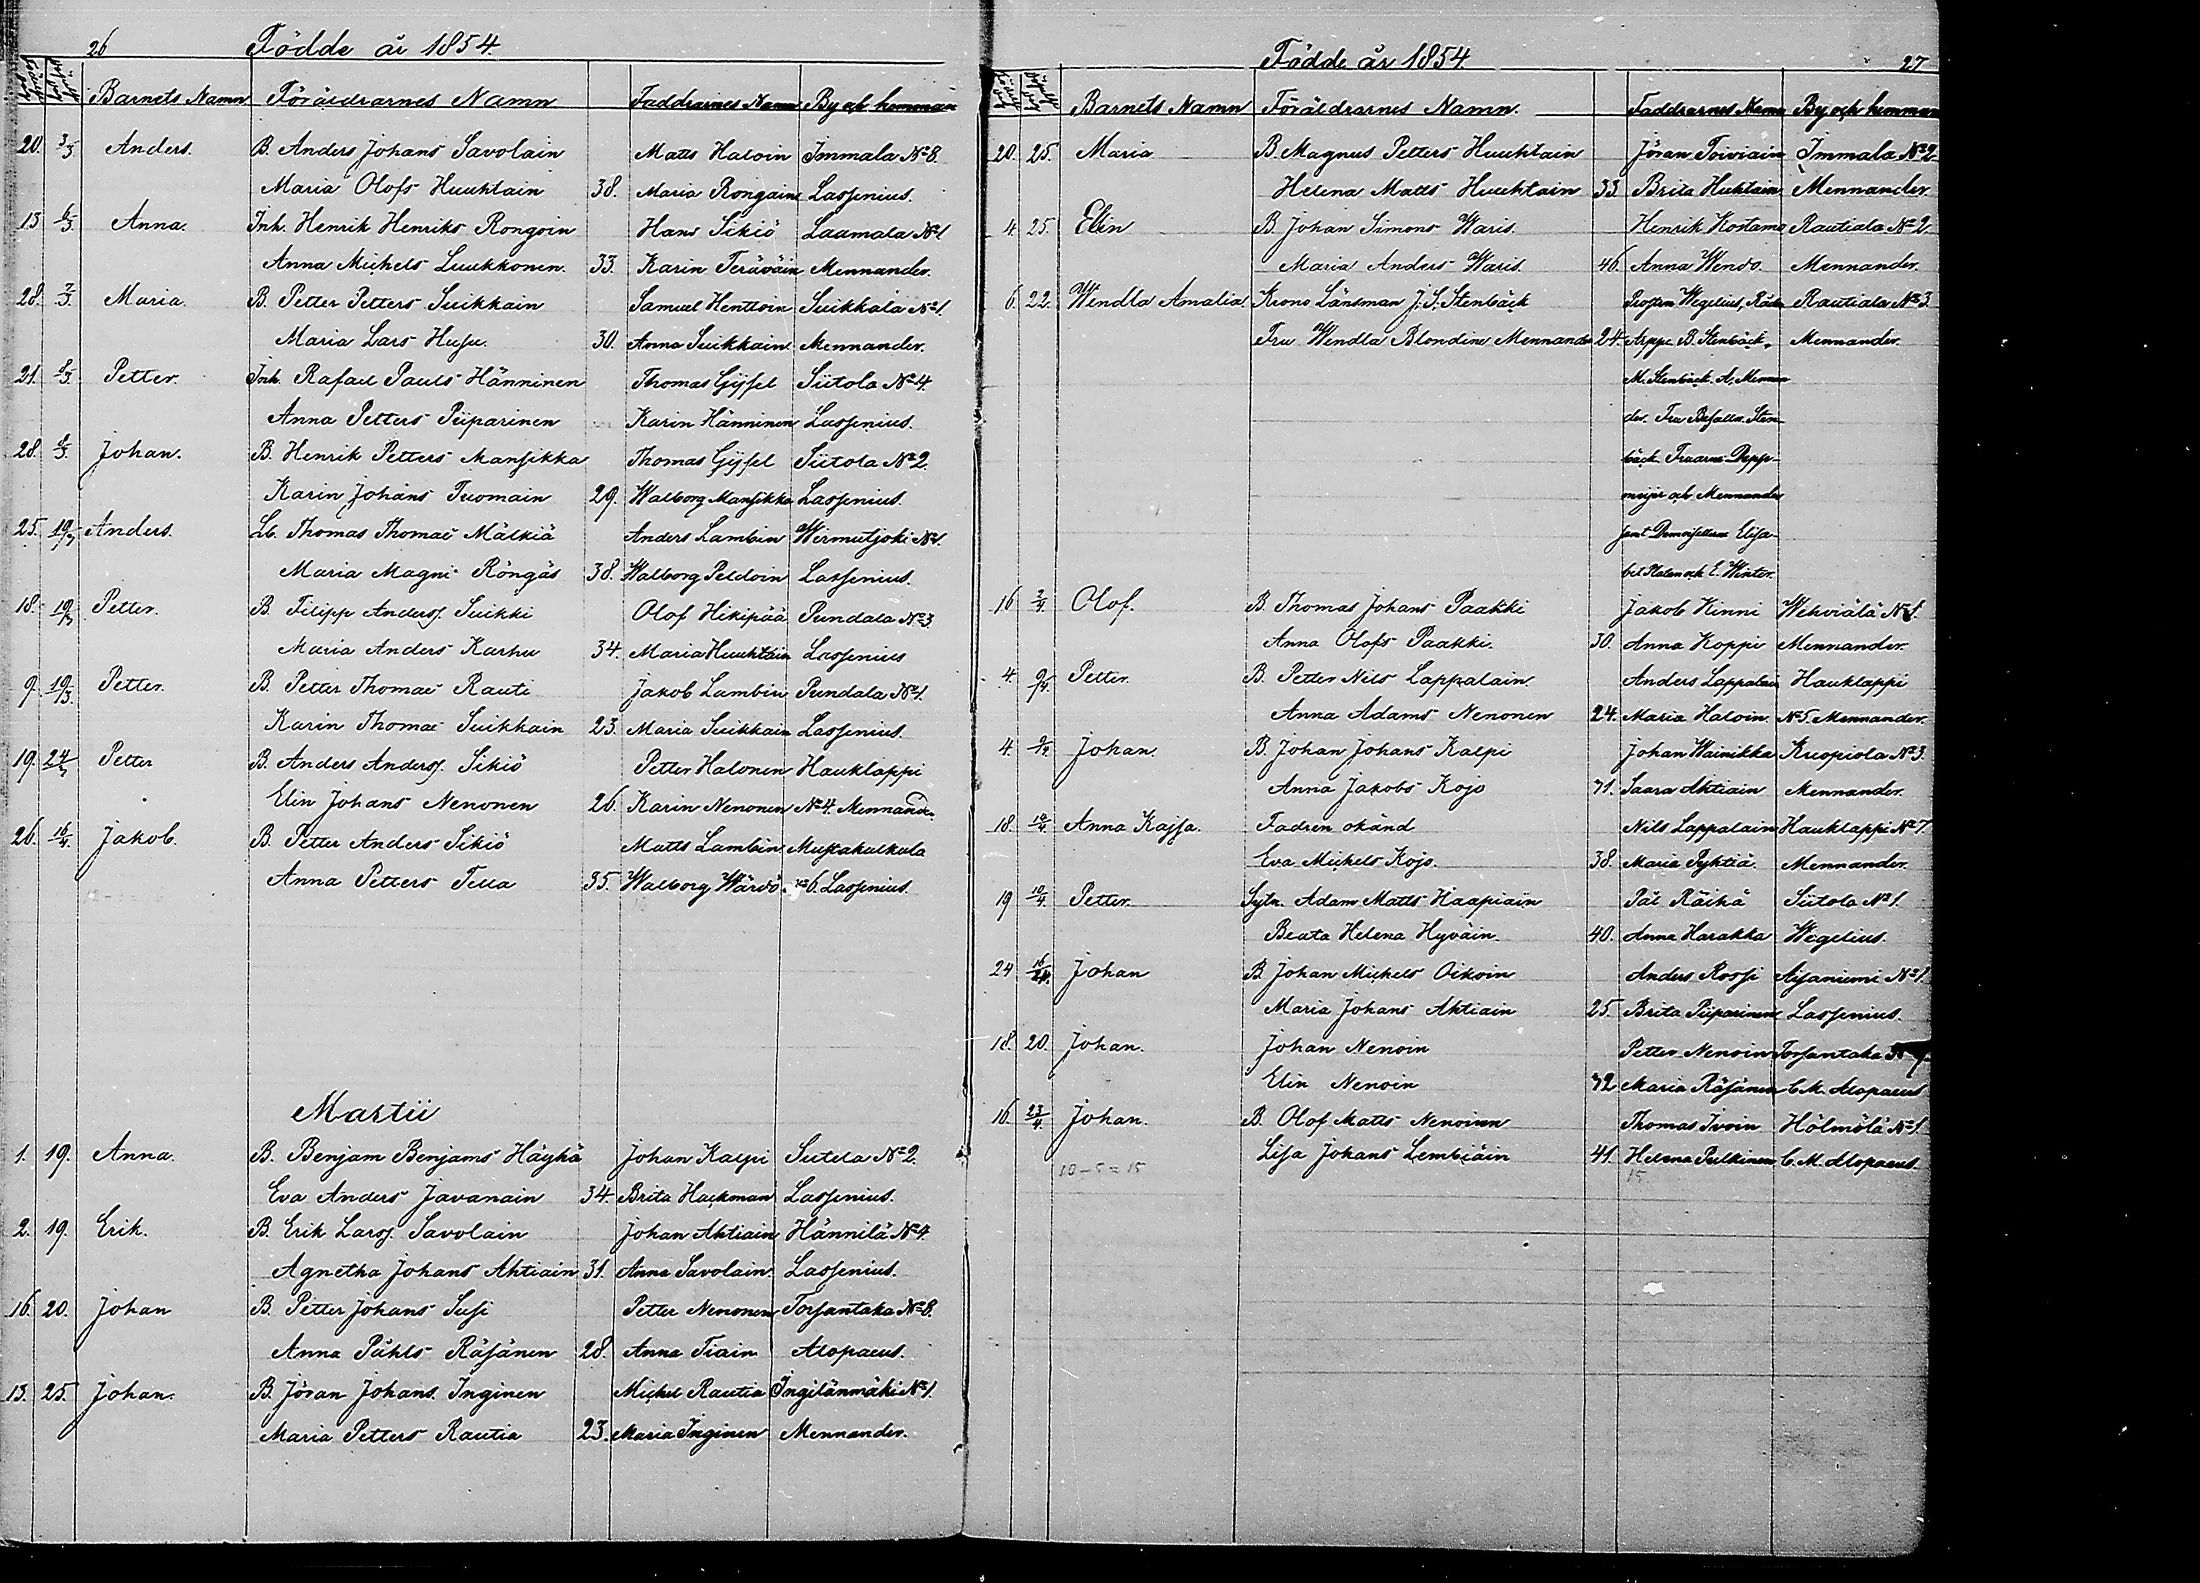 26 Födde år 1854.
Barnets Namn Föräldrarnes Namn Faddrarnes Namn By och hemman
20. 3/3 Anders. B. Anders Johans Savolain Matts Haloin Immala No 8.
Maria Olofs Huuhtain 38. Maria Rongain Lassenius.
13. 6/3 Anna. Inh. Henrik Henriks Rongoin Hans Sikiö Laamala No 1
Anna Michels Luukkonen. 33. Karin Teräväin Mennander.
28. 7/3 Maria. B. Petter Petters Suikkain Samuel Henttoin Suikkala No 1.
Maria Lars Husu. 30. Anna Suikkain Mennander.
21. 8/3 Petter. Inh. Rafael Pauls Hänninen Thomas Gijsel Siitola No 4
Anna Petters Piiparinen Karin Hänninen Lassenius.
28. 8/3 Johan. B. Henrik Petters Mansikka Thomas Gijsel Siitola No 2
Karin Johans Tuomain 29. Walborg Mansikka Lassenius.
25. 19/3 Anders. Lb. Thomas Thomae Mälkiä Anders Lambin Wirmutjoki No 1.
Maria Magni Röngäs 38. Walborg Peldoin Lassenius.
18. 19/3 Petter. B. Filipp Anders. Suikki Olof Hikipää Pundala No 3
Maria Anders Karhu 34. Maria Huuhtain Lassenius
9. 19/3. Petter. B. Petter Thomae Rauti Jakob Lambin Pundala No 1.
Karin Thomae Suikkain 23. Maria Suikkain Lassenius.
19. 24/3 Petter B. Anders Anders. Sikiö Petter Halonen Hauklappi
Elin Johans Nenonen 26. Karin Nenonen No 4. Mennander
26. 16/4. Jakob. B. Petter Anders Sikiö Matts Lambin Mustakulkula
Anna Petters Tella 35. Walborg Wärvö No 6. Lassenius.
Martii
1. 19. Anna. B. Benjam Benjams Häyhä Johan Kalpi Sutela No 2.
Eva Anders Javanain 34. Brita Hackman Lassenius.
2. 19. Erik. B. Erik Lars. Savolain Johan Ahtiain Hännilä No 4.
Agnetha Johans Ahtiain 31. Anna Savolain Lassenius.
16. 20. Johan B. Petter Johans Susi Petter Nenonen Torsantaka No 8.
Anna Påhls Räsänen 28. Anna Tiain Alopaeus.
13. 25. Johan. B. Jöran Johans. Inginen Michel Rautia Ingilänmäki No 1.
Maria Petters Rautia 23. Maria Inginen Mennander.
Födde år 1854. 27
Barnets Namn Föräldrarnes Namn. Faddrarnes Namn By och hemman
20. 25. Maria B. Magnus Petters Huuhtain Jöran Toiviain Immala No 2
Helena Matts Huuhtain 33. Brita Huhtain Mennander.
4. 25. Elin B. Johan Simons Waris. Henrik Kostamo Rautiala No 2.
Maria Anders Waris 46. Anna Wendo Mennander.
6. 22. Wendla Amalia. Krono Länsman J. S. Stenbäck Wegelius, Rautiala No 3.
Fru Wendla Blondine Mennander 24. Arppe B. Stenbäck, Mennander.
M. Stenbäck. A. Mennan
der. Fru Sten
bäck Fruarne Popp-
mejer och Mennander
samt Demoisellerne Elisa-
bet och E. Winter.
16 2/4. Olof. B. Thomas Johans Paakki Jakob Kinni Wehviälä No 1.
Anna Olofs Paakki. 30. Anna Koppi Mennander.
4. 9/4. Petter. B. Petter Nils Lappalain Anders Lappalain Hauklappi
Anna Adams Nenonen 24. Maria Haloin No 5. Mennander.
4. 9/4. Johan. B. Johan Johans Kalpi Johan Wainikka Kuopiola No 3.
Anna Jakobs Kojo 31. Saara Ahtiain Mennander.
18. 14/4 Anna Kajsa. Fadren okänd Nils Lappalain Hauklappi No 7.
Eva Michels Kojo. 38. Maria Pyhtiä Mennander.
19 10/4. Petter. Sytn. Adam Matts Haapiain Pål Räikä Siitola No 1.
Beata Helena Hyväin. 40. Anna Harakka Wegelius.
24 16/4. Johan B. Johan Michels Oikoin Anders Rossi Aijaniemi No 1.
Maria Johans Ahtiain 25. Brita Piiparinen Lassenius.
18. 20. Johan. Johan Nenoin Petter Nenoin Torsantaka
Elin Nenoin 32 Maria Räsänen C. M. Alopaeus
16. 23/4 Johan. B. Olof Matts Nenoinen Thomas Ivoin Hölmölä No 1.
Lisa Johans Lembiäin 41. Helena Pulkinen C. M. Alopaeus.
10 - 5 = 15 15